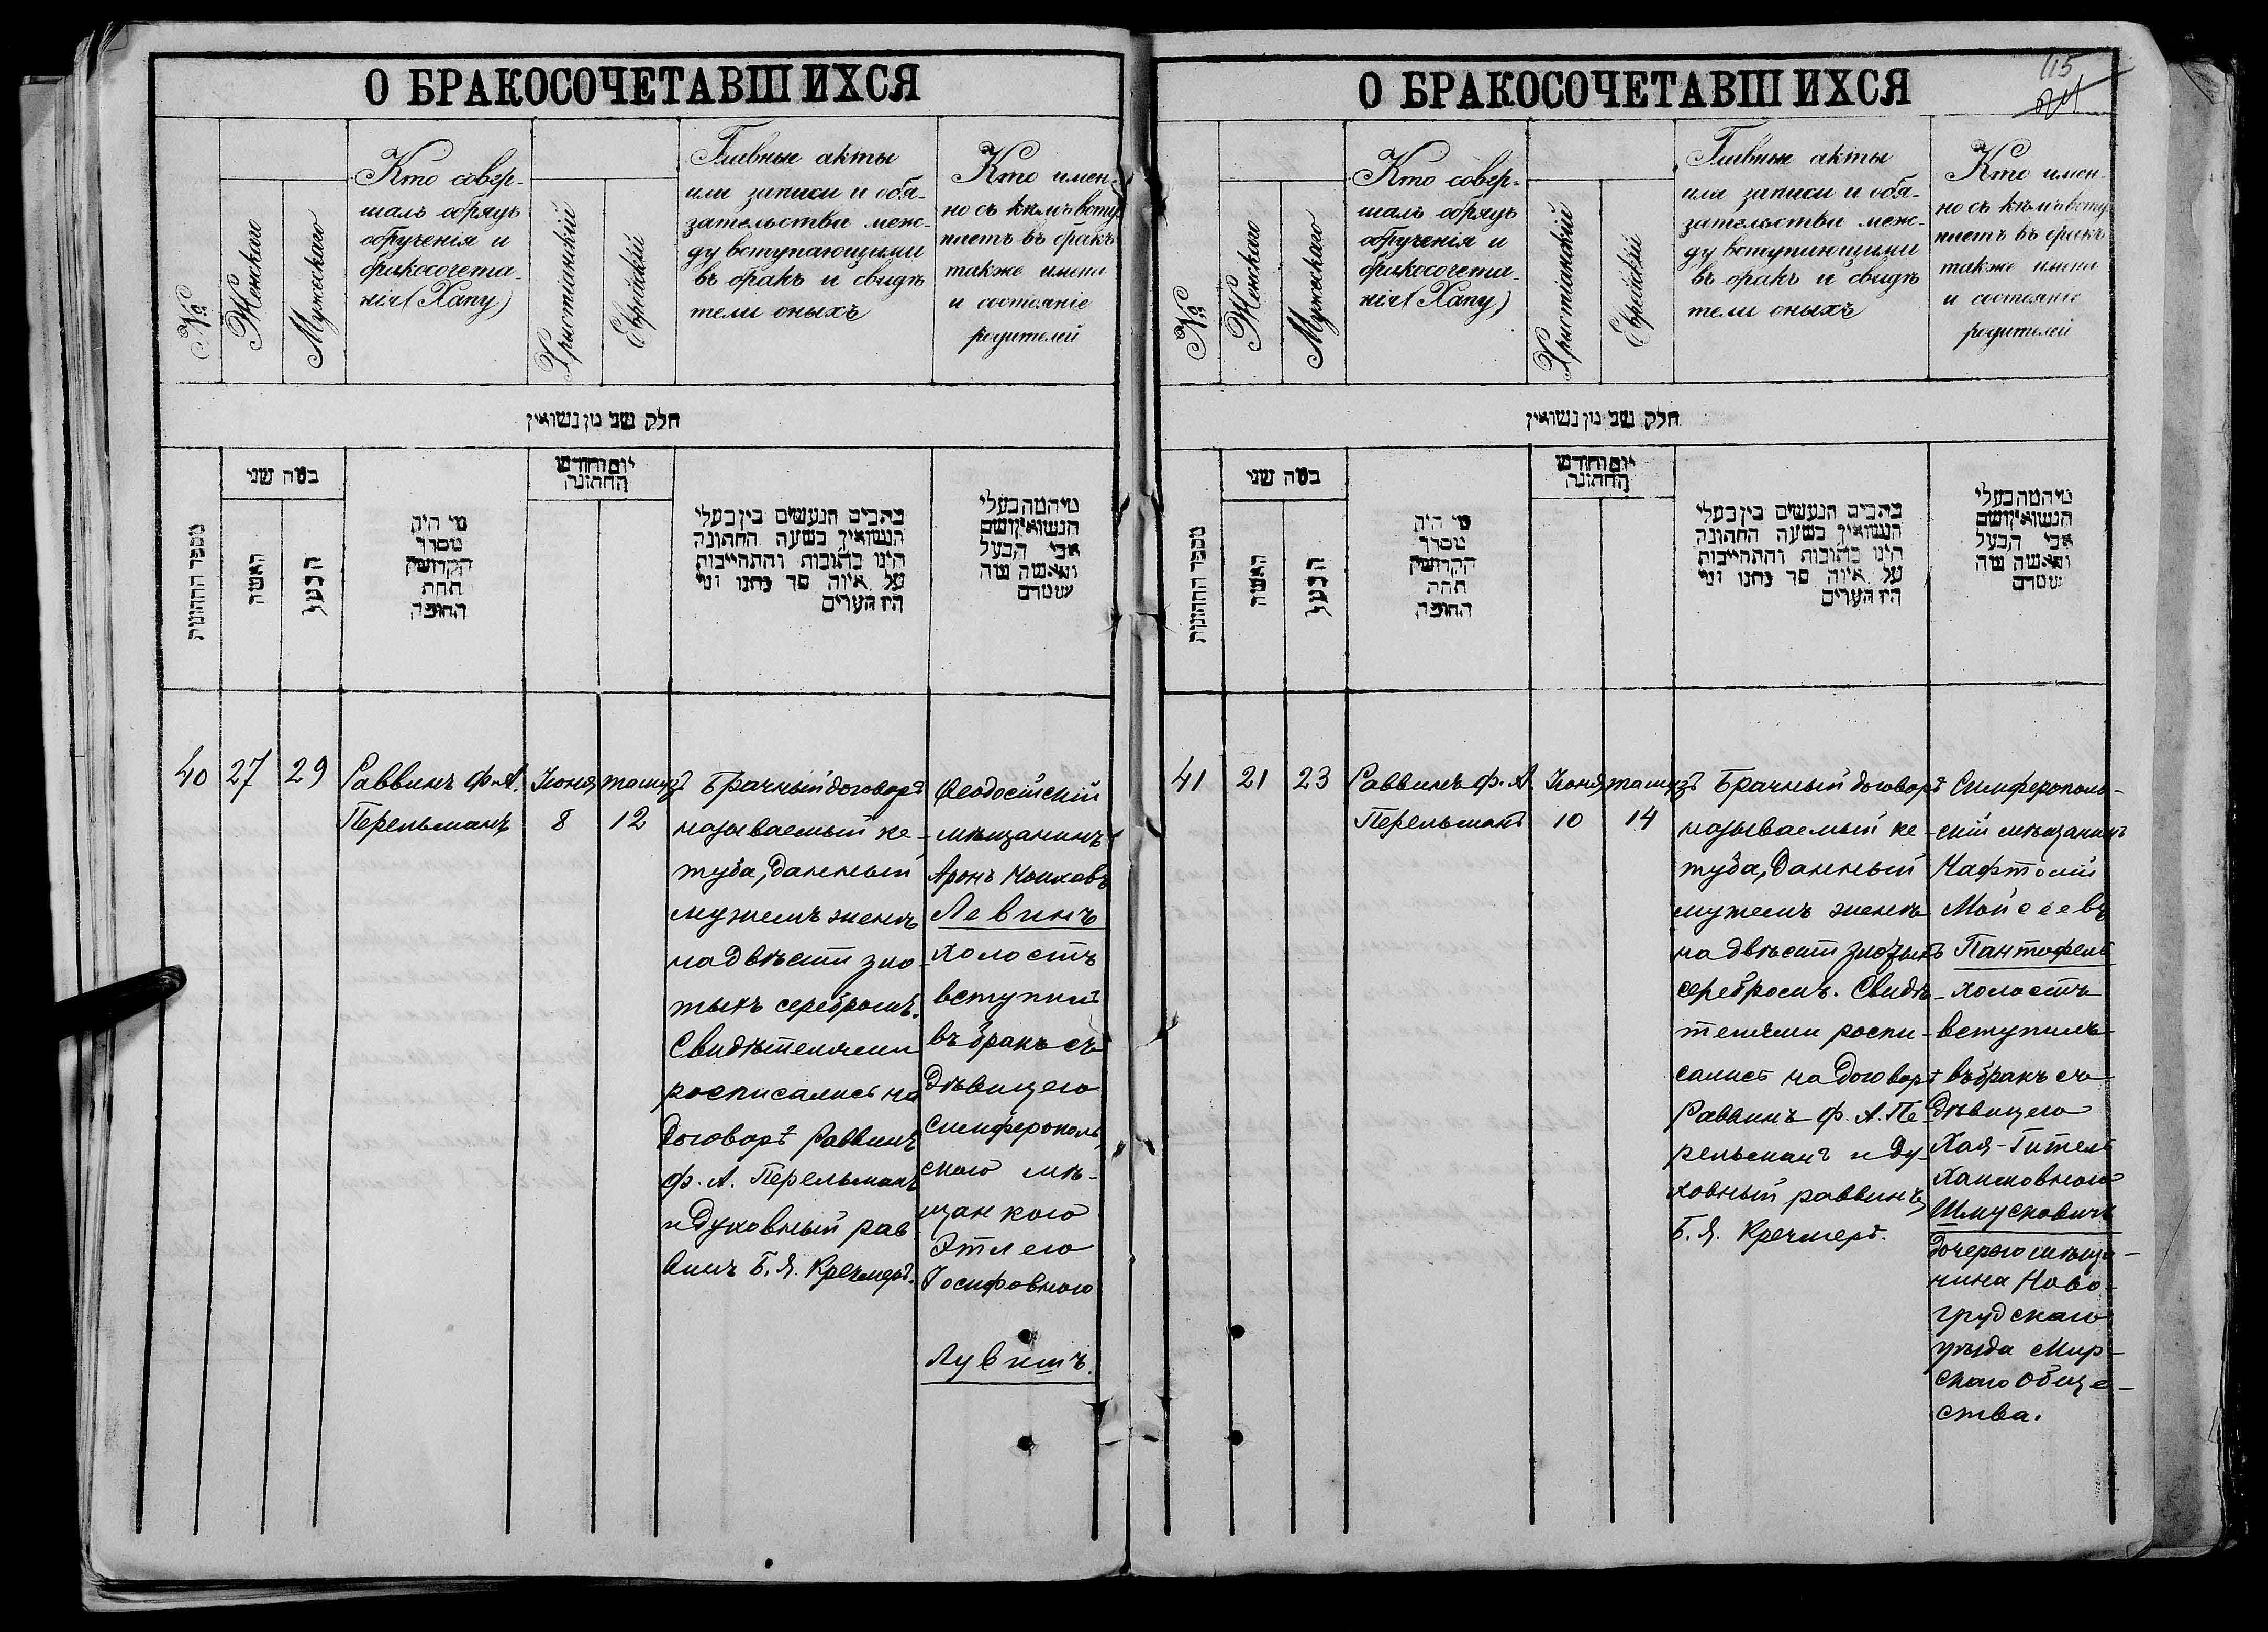 О БРАКОСОЧЕТАВШИХСЯ
№
Женскаго
Мужескаго
Кто совер-
шалъ обрядъ
обрученія и
бракосочета-
нія (Хапу)
Христіанскій
Еврейскій
Главные акты
или записи и обя-
зательства меж-
ду вступающими
въ бракъ и свидѣ
тели оныхъ
Кто имен-
но съ кѣмъ всту
паетъ въ бракъ
также имена
и состояніе
родителей
חלק שני מן נשואין
מספר החתונות
כמה שני
האשה
הבעל
מי היה
מסדר
הקדושין
תחת
החופה
יום וחודש
החתונה
כתבים הנעשים בין בעלי
הנשואין בשעה החתונה
היינו כתובות והתחייבות
על איזה סך נתנו ומי
היו העדים
מי המה בעלי
הנשואין ושם
אבי הבעל
והאשה
40
27
29
Раввинъ Ф. А.
Перельманъ
Іюня
8
тамузъ
12
Брачный договоръ
называемый ке-
туба, данный
мужемъ женѣ
на двѣсти зло-
тыхъ серебромъ.
Свидѣтелями
росписались на
договорѣ раввинъ
Ф. А. Перельманъ
и духовный рав
винъ Б. Я. Кречмеръ.
Феодосійскій
мѣщанинъ
Аронъ
Левинъ
холостъ
вступилъ
въ бракъ съ
дѣвицею
Симферополь
скою мѣ-
щанкою
Этлею
Іосифовною
О БРАКОСОЧЕТАВШИХСЯ
115
№
Женскаго
Мужескаго
Кто совер-
шалъ обрядъ
обрученія и
бракосочета-
нія (Хапу)
Христіанскій
Еврейскій
Главные акты
или записи и обя-
зательства меж-
ду вступающими
въ бракъ и свидѣ
тели оныхъ
Кто имен-
но съ кѣмъ всту
паетъ въ бракъ
также имена
и состояніе
родителей
חלק שני מן נשואין
מספר החתונות
כמה שני
האשה
הבעל
מי היה
מסדר
הקדושין
תחת
החופה
יום וחודש
החתונה
כתבים הנעשים בין בעלי
הנשואין בשעה החתונה
היינו כתובות והתחייבות
על איזה סך נתנו ומי
היו העדים
מי המה בעלי
הנשואין ושם
אבי הבעל
והאשה
41
21
23
Раввинъ Ф. А.
Перельманъ
Іюня
10
тамузъ
14
Брачный договоръ
называемый ке-
туба, данный
мужемъ женѣ
на двѣсти злотыхъ
серебромъ. Свидѣ-
телями роспи-
сались на договорѣ
Раввинъ Ф. А. Пе-
рельманъ и ду-
ховный раввинъ
Б. Я. Кречмеръ.
Симферополь-
скій мѣщанинъ
Нафтолій
Мойсеевъ
Пантофель
холостъ
вступилъ
въ бракъ съ
дѣвицею
Хая-Гитель
Хаимовною
Шмусковичъ
дочерью мѣща-
нина Ново-
грудскаго
уѣзда Мир-
скаго обще-
ства.